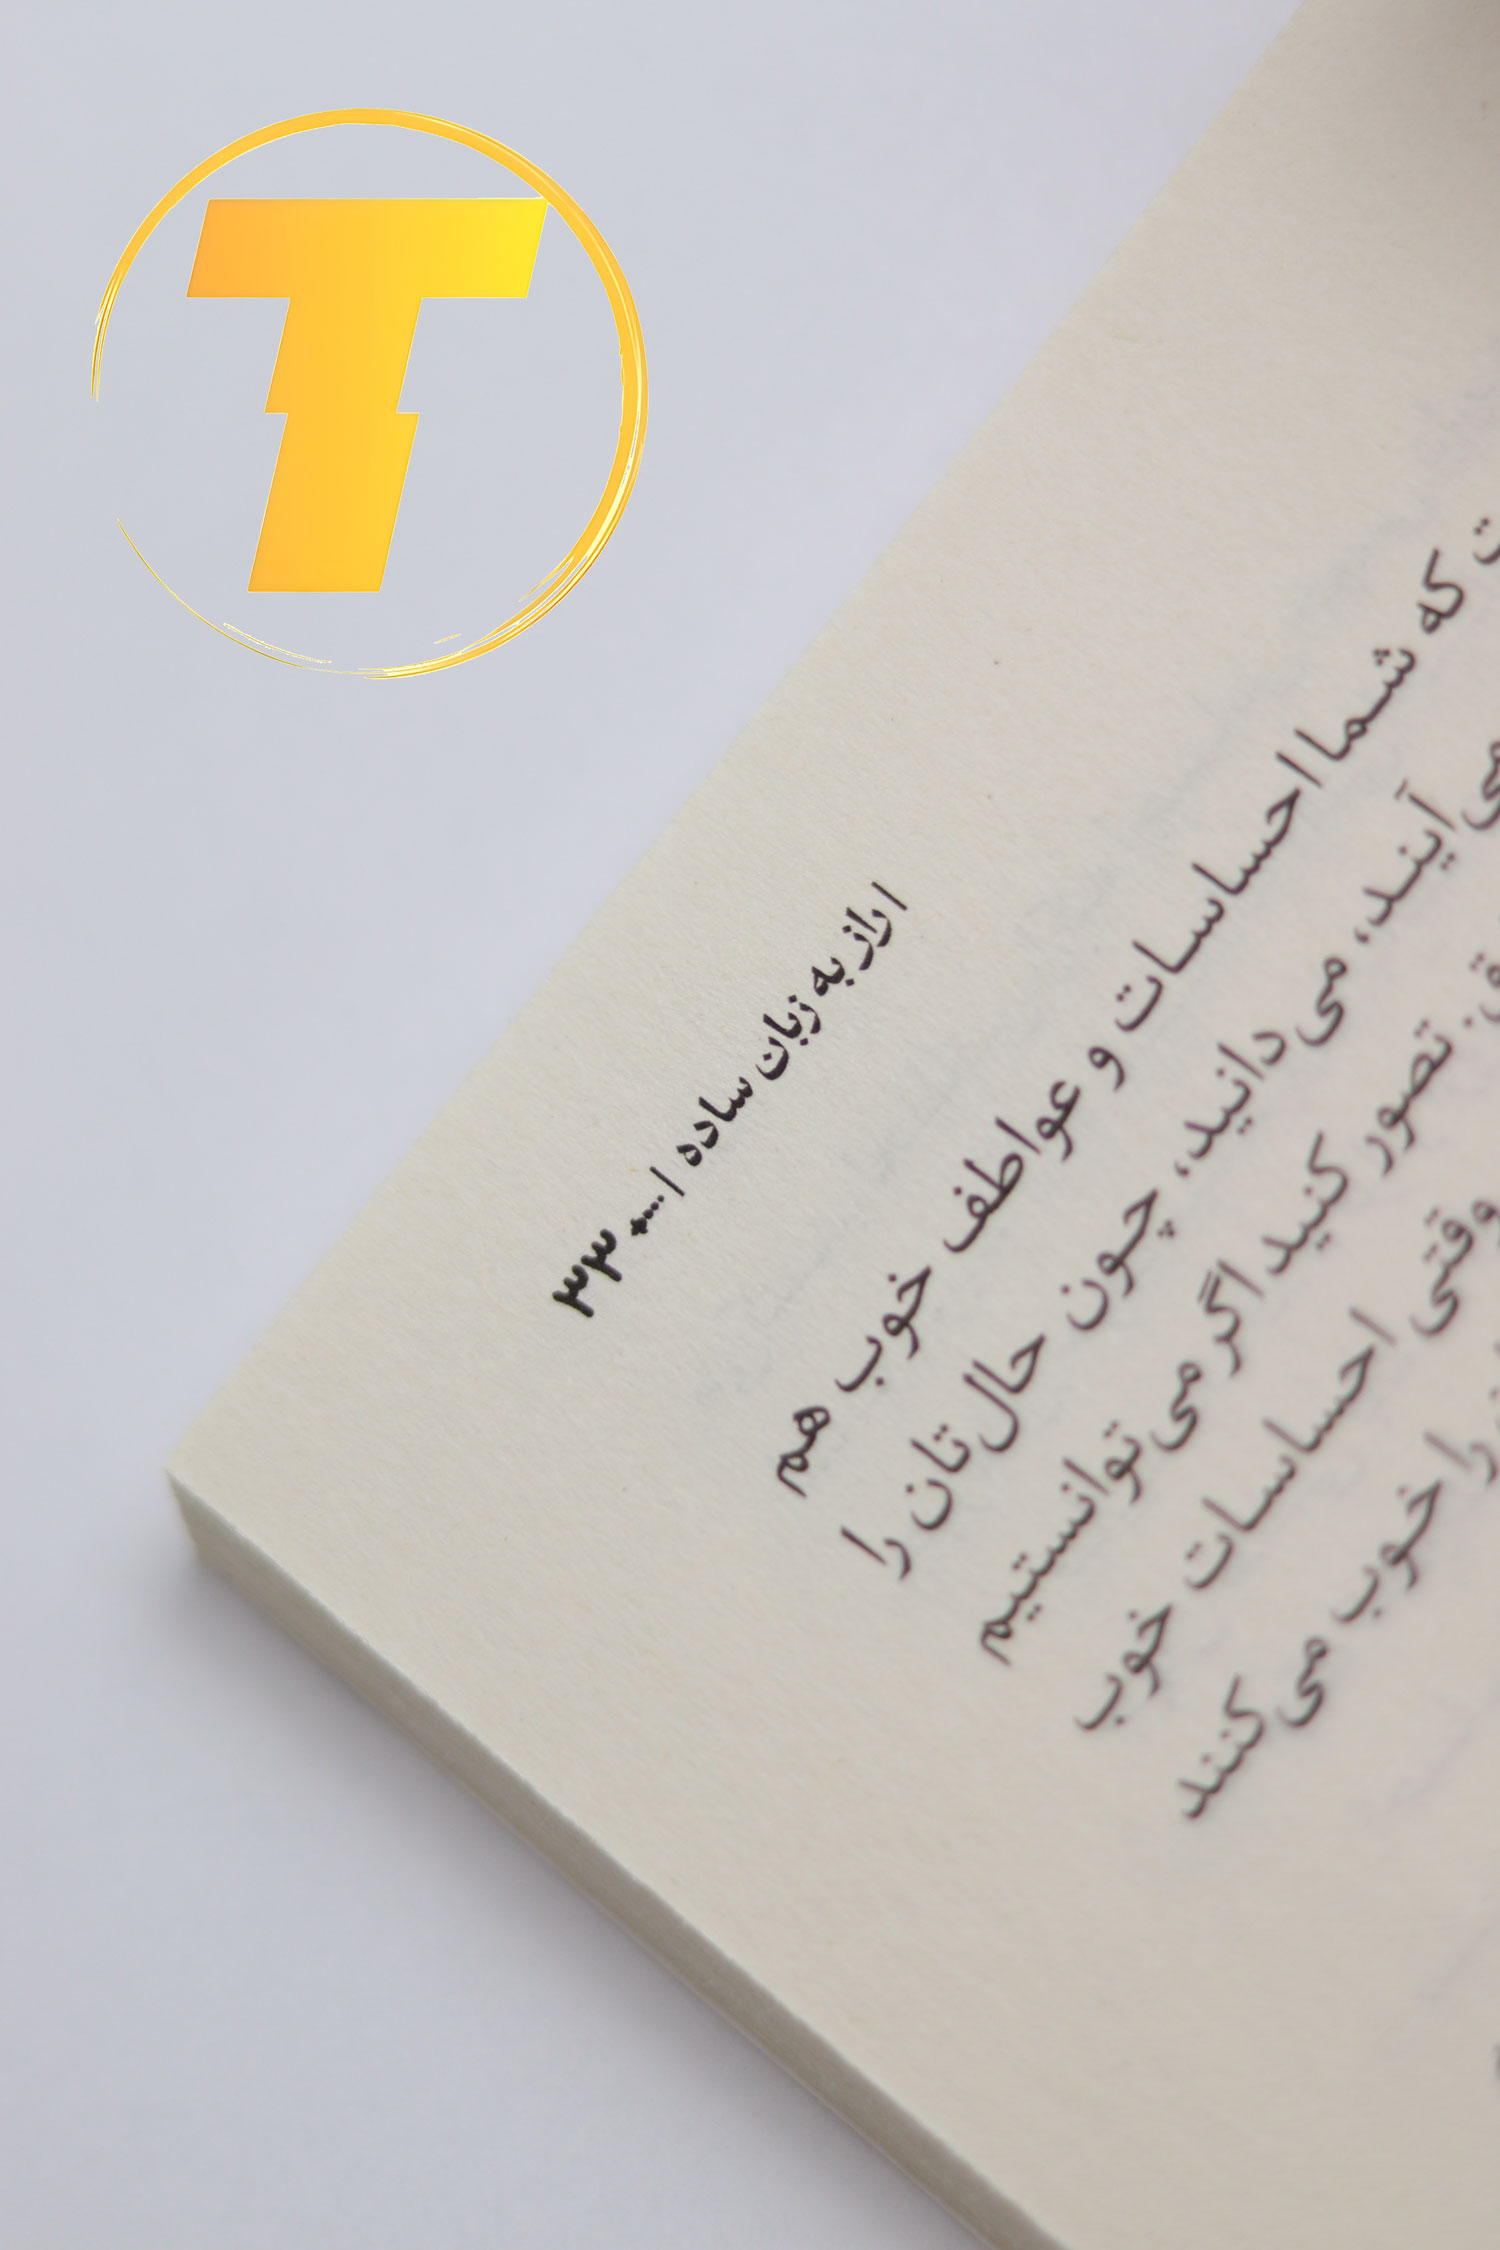 T
/ راز به زبان ساده / ... ۳۳
که شما احساسات و عواطف خوب هم
می آیند، می دانید، چون حال تان را
تصور کنید اگر می توانستیم
وقتی احساسات خوب
را خوب می کنند